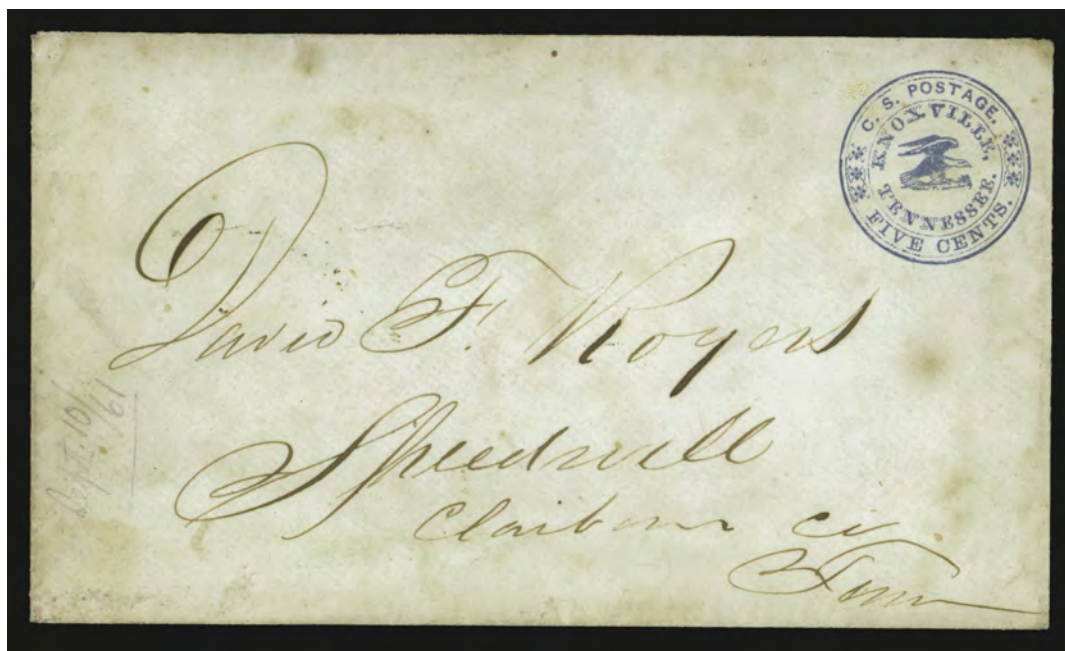 C. S. POSTAGE.
KNOXVILLE,
TENNESSEE.
FIVE CENTS.
David F. Rogers
Speedwell
Claiborne Co
Tenn
Sept. 10/
61